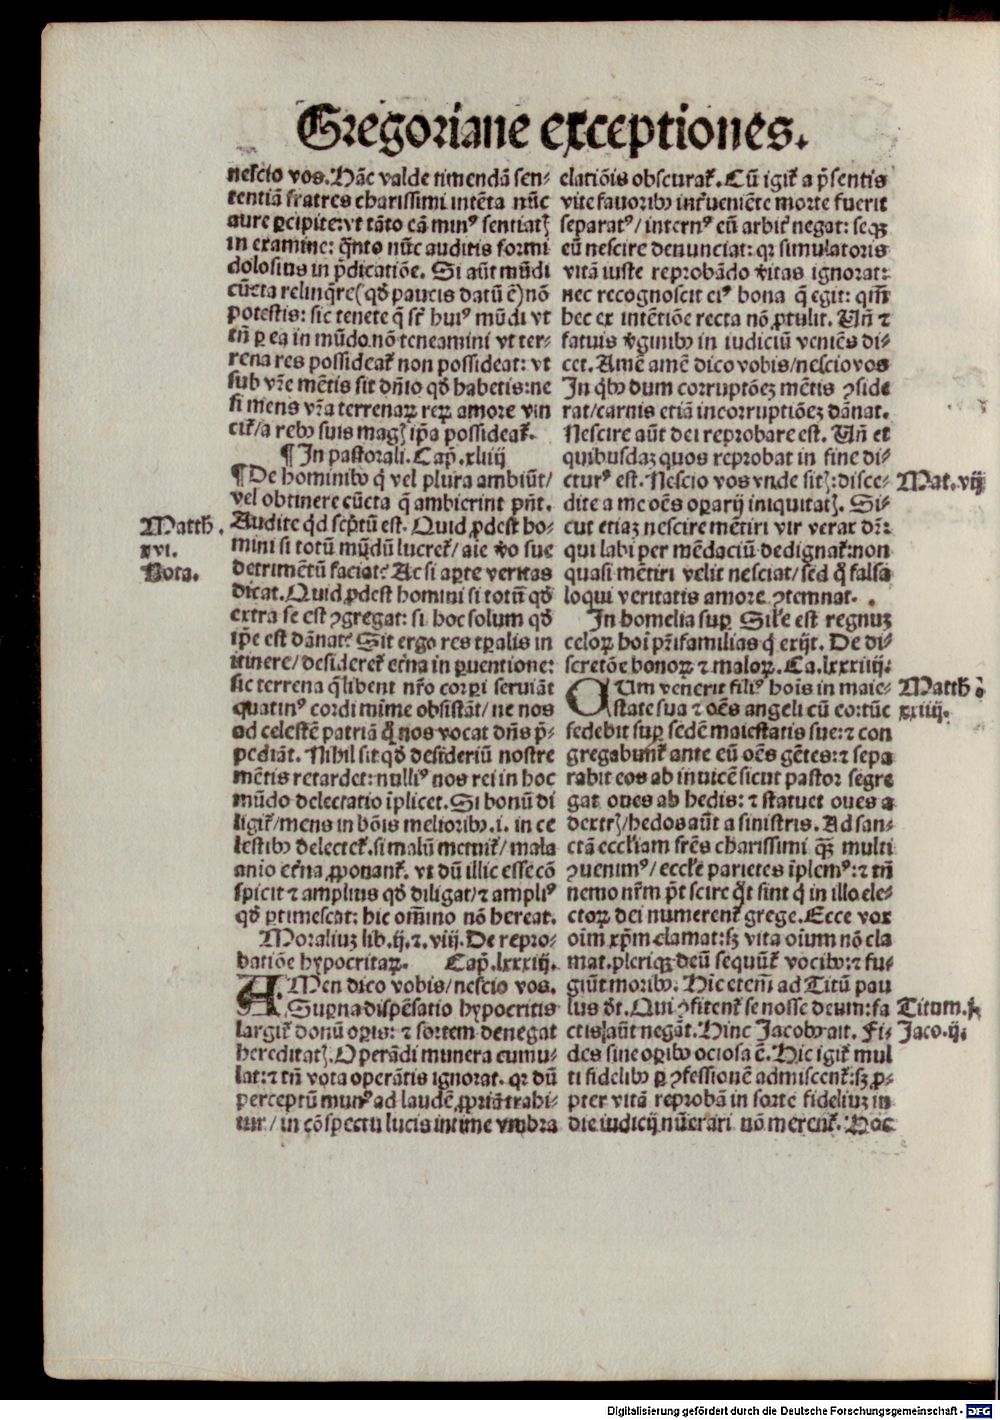 Gregoriane exceptiones.
nescio vos. Hāc valde timendā sen-
tentiā fratres charissimi intēta nūc
aure ꝑcipite: vt tāto eā minꝰ sentiatꝭ
in examine: q̄nto nūc auditis formi
dolosius in p̄dicatiōe. Si aūt mūdi
cūcta relinq̄re (qd̓ paucis datū ē) nō
potestis: sic tenete q̄ sr̄ huiꝰ mūdi vt
tn̄ ꝑ ea in mūdo nō teneamini vt ter-
rena res possideat̄ non possideat: vt
sub vr̄e mētis sit dn̄io qd̓ habetis: ne
si mens vr̄a terrenaꝝ reꝝ amore vin
cit̄/ a rebꝰ suis magꝭ ip̄a possideat̄.
¶ In pastorali. Cap̄. xliiij
¶ De hominibꝰ q̄ vel plura ambiūt/
vel obtinere cūcta q̄ ambierint pn̄t.
Matth.
xvi.
Nota.
Audite qd̓ sc̄ptū est. Quid ꝓdest ho-
mini si totū mūdū lucret̄/ aīe v̓o sue
detrimētū faciat? Ac si aꝑte veritas
dicat. Quid ꝓdest homini si totū qd̓
extra se est ꝯgregat: si hoc solum qd̓
ip̄e est dānat? Sit ergo res tꝑalis in
itinere/ desideret̄ et̄na in ꝑuentione:
sic terrena q̄libent nr̄o corꝑi seruiāt
quatinꝰ cordi mīme obsistāt/ ne nos
ad celestē patriā q̄ nos vocat dn̄s p̄-
pediāt. Nihil sit qd̓ desideriū nostre
mētis retardet: nulliꝰ nos rei in hoc
mūdo delectatio īplicet. Si bonū di
ligit̄/ mens in bōis melioribꝰ .i. in ce
lestibꝰ delectet̄. si malū metuit̄/ mala
anīo et̄na ꝓponant̄. vt dū illic esse cō
spicit ⁊ amplius qd̓ diligat/ ⁊ ampliꝰ
qd̓ ꝑtimescat: hic om̄ino nō hereat.
Moraliuꝫ lib. ij. ⁊. viij. De repro-
batiōe hypocritaꝝ. Cap̄. lxxxiij.
AMen dico vobis/ nescio vos.
Suꝑna dispēsatio hypocritis
largit̄ donū oꝑis: ⁊ sortem denegat
hereditatꝭ. Operādi munera cumu-
lat: ⁊ tn̄ vota operātis ignorat. qꝛ dū
perceptū munꝰ ad laudē ꝓpriā trahi-
tur/ in cōspectu lucis intime vmbra
elatiōis obscurat̄. Cū igit̄ a p̄sentis
vite fauoribꝰ int̄ueniēte morte fuerit
separatꝰ/ internꝰ eū arbit̄ negat: seqꝫ
eū nescire denunciat: qꝛ simulatoris
vitā iuste reprobādo v̓itas ignorat:
nec recognoscit eiꝰ bona q̄ egit: qm̄
hec ex intētiōe recta nō ꝓtulit. Vn̄ ⁊
fatuis v̓ginibꝰ in iudiciū veniēs di-
cet. Amē amē dico vobis/ nescio vos
In q̄bꝰ dum corruptōeꝫ mētis ꝯside
rat/ carnis etiā incorruptiōeꝫ dānat.
Nescire aūt dei reprobare est. Vn̄ et
quibusdaꝫ quos reprobat in fine di-
cturꝰ est. Nescio vos vnde sitꝭ: disce-
Mat. vij
dite a me oēs oꝑarij iniquitatꝭ. Si-
cut etiaꝫ nescire mētiri vir verax dr̄:
qui labi per mēdaciū dedignat̄: non
quasi mētiri velit nesciat/ sed q̄ falsa
loqui veritatis amore ꝯtemnat.
In homelia suꝑ Sil̓e est regnuꝫ
celoꝝ hoī pr̄ifamilias q̄ exijt. De di-
scretōe bonoꝝ ⁊ maloꝝ. Ca. lxxxiiij.
CUm venerit filiꝰ hoīs in maie-
state sua ⁊ oēs angeli cū eo: tūc
Matth
xxiiij.
sedebit suꝑ sedē maiestatis sue: ⁊ con
gregabunt̄ ante eū oēs gētes: ⁊ sepa
rabit eos ab inuicē sicut pastor segre
gat oues ab hedis: ⁊ statuet oues a
dextrꝭ/ hedos aūt a sinistris. Ad san-
ctā eccl̓iam fr̄es charissimi qꝫ multi
ꝯuenimꝰ/ eccl̓e parietes īplemꝰ: ⁊ tn̄
nemo nr̄m pt̄ scire q̄t sint q̄ in illo ele-
ctoꝝ dei numerent̄ grege. Ecce vox
oīm xp̄m clamat: sꝫ vita oīum nō cla
mat. pleriqꝫ deū sequūt̄ vocibꝰ: ⁊ fu-
giūt moribꝰ. Hic etem̄ ad Titū pau
lus d̓t. Qui ꝯfitent̄ se nosse deum: fa
Titum. j.
ctis aūt negāt. Hinc Jacobꝰ ait. Fi-
Jaco. ij.
des sine oꝑibꝰ ociosa ē. Hic igit̄ mul
ti fidelibꝰ ꝑ ꝯfessionē admiscent̄: sꝫ ꝓ-
pter vitā reprobā in sorte fideliuꝫ in
die iudicij nūerari nō merent̄. Hoc
Digitalisierung gefördert durch die Deutsche Forschungsgemeinschaft - DFG